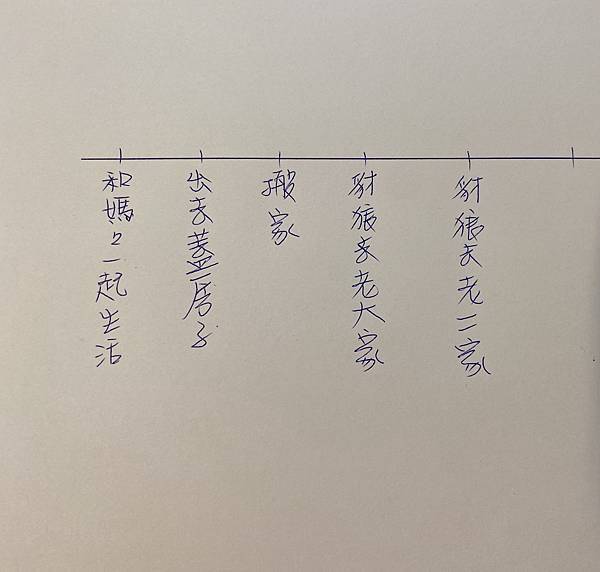 和媽々一起生活
出去蓋房子
搬家
豺狼來老大家
豺狼去老二家